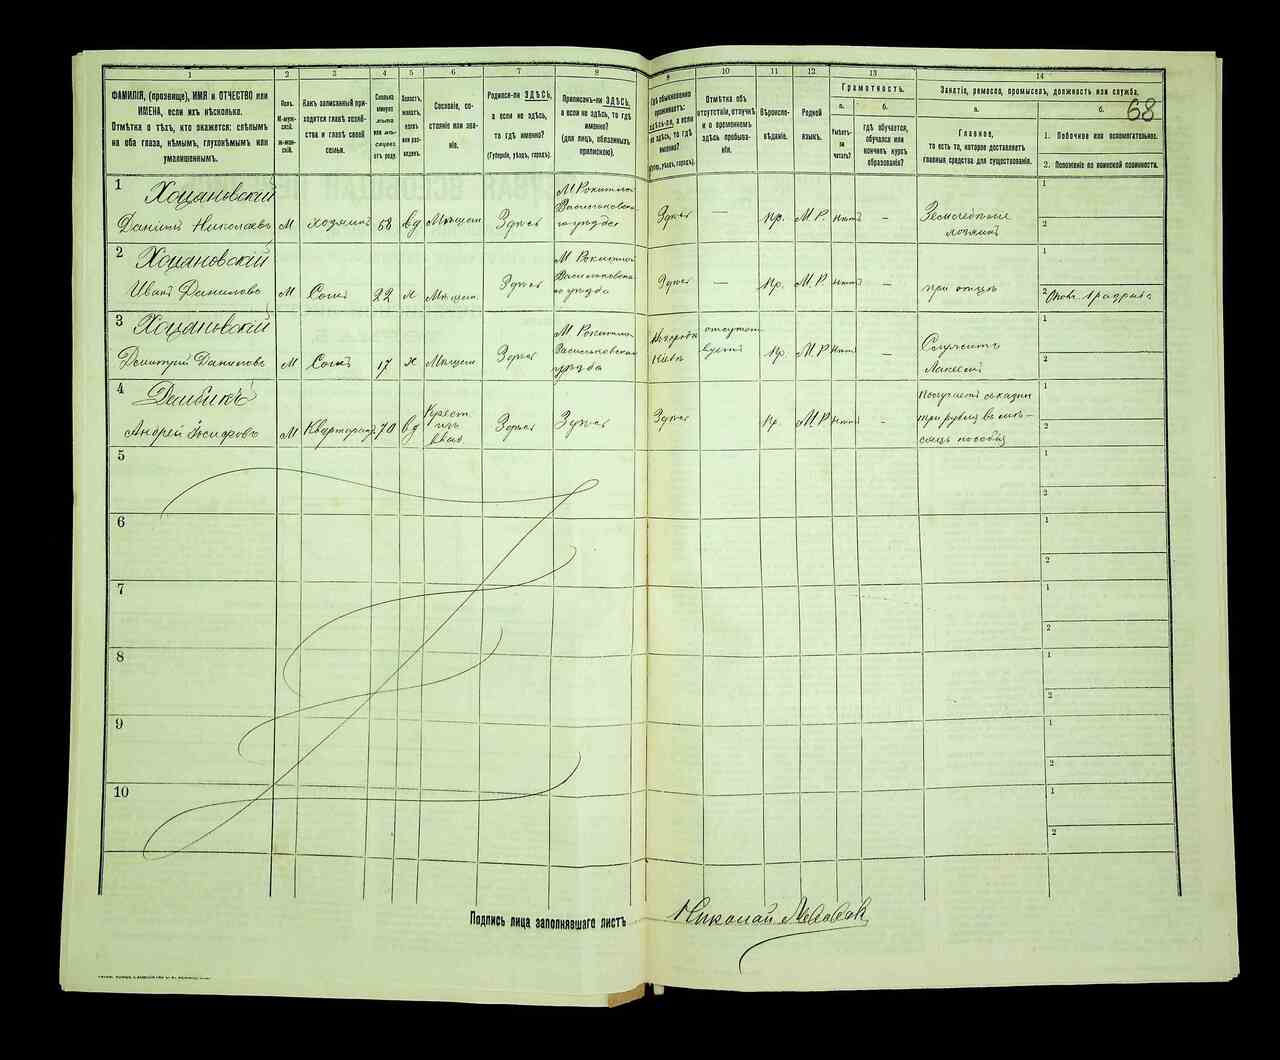 1 2 3 4 5 6 7 8 9 10 11 12 13 14
68
ФАМИЛІЯ, (прозвище), ИМЯ и ОТЧЕСТВО или
ИМЕНА, если ихъ нѣсколько.
Отмѣтка о тѣхъ, кто окажется: слѣпымъ
на оба глаза, нѣмымъ, глухонѣмымъ или
умалишеннымъ.
Полъ.
М-муж-
ской.
Ж-жен-
скій.
Какъ записанный при-
ходится главѣ хозяй-
ства и главѣ своей
семьи.
Сколько
минуло
лѣтъ
или мѣ-
сяцевъ
отъ роду.
Холостъ,
женатъ,
вдовъ
или раз-
веденъ.
Сословіе, со-
стояніе или зва-
ніе.
Родился-ли ЗДѢСЬ,
а если не здѣсь,
то гдѣ именно?
(Губернія, уѣздъ, городъ).
Приписанъ-ли ЗДѢСЬ,
а если не здѣсь, то гдѣ
именно?
(для лицъ, обязанныхъ
припискою).
Гдѣ обыкновенно
проживаетъ:
здѣсь-ли, а если
не здѣсь, то гдѣ
именно?
Отмѣтка объ
отсутствіи, отлучкѣ
и о временномъ
здѣсь пребыва-
ніи.
Вѣроиспо-
вѣданіе.
Родной
языкъ.
Грамотность.
а. б.
Умѣетъ-
ли
читать?
гдѣ обучается,
обучался или
кончилъ курсъ
образованія?
Занятіе, ремесло, промыселъ, должность или служба.
а. б.
Главное,
то есть то, которое доставляетъ
главныя средства для существованія.
1. Побочное или вспомогательное.
2. Положеніе по воинской повинности.
1 Хоцановскій
Даніилъ Николаевъ М хозяинъ 68 вд Мѣщан. Здѣсь
М Рокитно
Васильковскаго
уѣзда
Здѣсь — Пр. М.Р. нѣтъ —
Земледѣліе
хозяинъ
1
2
2 Хоцановскій
Иванъ Даниловъ М Сынъ 22 х Мѣщан. Здѣсь
М Рокитно
Васильковскаго
уѣзда
Здѣсь — Пр. М.Р. нѣтъ —
при отцѣ
1
2 1 разряда
3 Хоцановскій
Дмитрій Данилов М Сынъ 17 х Мѣщан Здѣсь
М Рокитно
Васильковскаго
уѣзда
городъ
Кіевъ
отсутст
вуетъ
Пр. М.Р. нѣтъ —
Служитъ
Лакеемъ
1
2
4
Андрей Іосифовъ М Квартирантъ 70 вд
Крест
изъ
Здѣсь Здѣсь Здѣсь Пр. М.Р. нѣтъ —
Получаетъ
три рубля въ мѣ-
сяцъ пособія
1
2
5
1
2
6
1
2
7
1
2
8
1
2
9
1
2
10
1
2
Подпись лица заполнявшаго листъ Николай